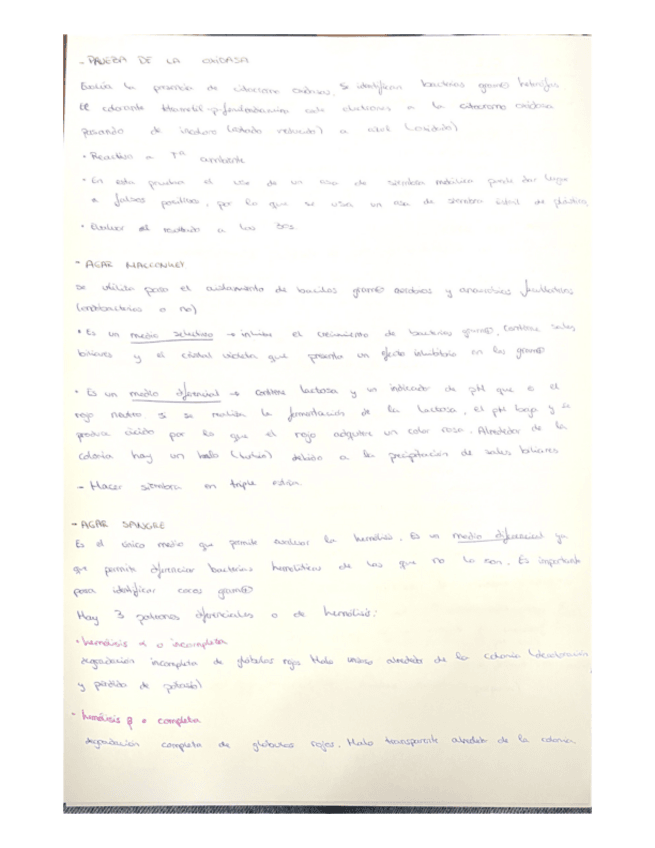 - PRUEBA DE LA OXIDASA
Evalúa la presencia de citocromo oxidasa. Se identifican bacterias gram⊖
El colorante tetrametil-p- cede electrones a la citocromo oxidasa
pasando de incoloro (estado reducido) a azul (oxidado)
• Reactivo a Tª ambiente
• En esta prueba el uso de un asa de siembra metálica puede dar lugar
a falsos positivos, por lo que se usa un asa de siembra estéril de plástico
• Evaluar el resultado a los 30s.
- AGAR MACCONKEY
se utiliza para el aislamiento de bacilos gram⊖ aerobios y anaerobios facultativos
(enterobacterias o no)
• Es un medio selectivo → inhibe el crecimiento de bacterias gram⊕. Contiene sales
biliares y el cristal violeta que presenta un efecto inhibitorio en las gram⊕
• Es un medio diferencial → contiene lactosa y un indicador de pH que es el
rojo neutro. Si se realiza la fermentación de la lactosa, el pH baja y se
produce ácido por lo que el rojo adquiere un color rosa. Alrededor de la
colonia hay un halo (turbio) debido a la precipitación de sales biliares
- Hacer siembra en triple estría
- AGAR SANGRE
Es el único medio que permite evaluar la hemólisis. Es un medio diferencial ya
que permite diferenciar bacterias hemolíticas de las que no lo son. Es importante
para identificar cocos gram⊕
Hay 3 patrones diferenciales o de hemólisis:
• hemólisis α o incompleta
degradación incompleta de glóbulos rojos. Halo alrededor de la colonia (decoloración
y pérdida de potasio)
- hemólisis β o completa
degradación completa de glóbulos rojos. Halo transparente alrededor de la colonia.